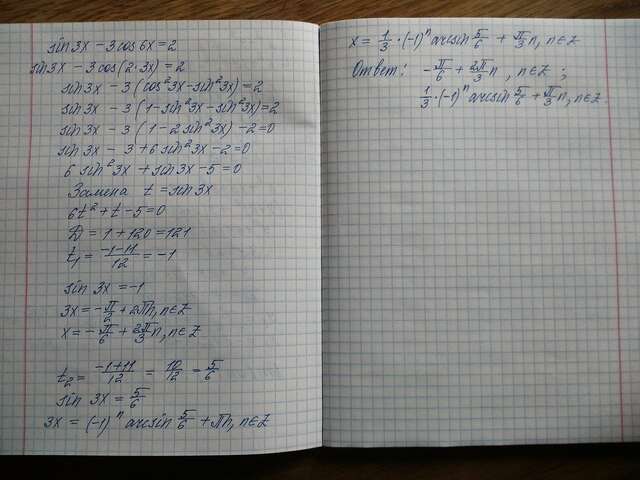 sin 3x − 3 cos 6x = 2
sin 3x − 3 cos(2·3x) = 2
sin 3x − 3 (cos²3x − sin²3x) = 2
sin 3x − 3 (1 − sin²3x − sin²3x) = 2
sin 3x − 3 (1 − 2 sin²3x) − 2 = 0
sin 3x − 3 + 6 sin²3x − 2 = 0
6 sin²3x + sin 3x − 5 = 0
Замена t = sin 3x
6t² + t − 5 = 0
D = 1 + 120 = 121
t₁ = (−1−11)/12 = −1
sin 3x = −1
3x = −π/2 + 2πn, n∈Z
x = −π/6 + 2π/3 n, n∈Z
t₂ = (−1+11)/12 = 10/12 = 5/6
sin 3x = 5/6
3x = (−1)ⁿ arcsin 5/6 + πn, n∈Z
x = 1/3 · (−1)ⁿ arcsin 5/6 + π/3 n, n∈Z
Ответ: −π/6 + 2π/3 n, n∈Z ;
1/3 · (−1)ⁿ arcsin 5/6 + π/3 n, n∈Z.